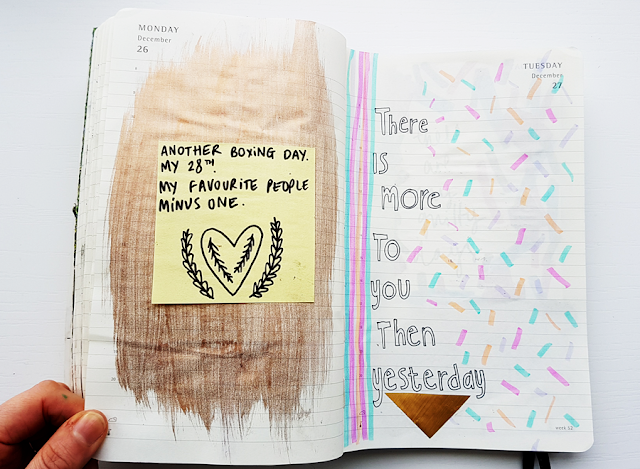 MONDAY
December
26
ANOTHER BOXING DAY.
MY 28TH.
MY FAVOURITE PEOPLE
MINUS ONE.
TUESDAY
December
27
There
IS
more
To
you
Then
yesterday
week 52